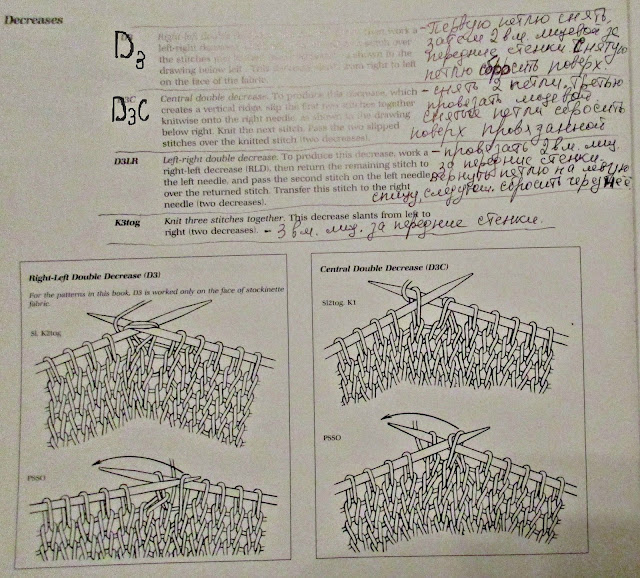 Decreases
D3
Right-left double work a
left-right stitch over
the stitches shown in the
drawing below left. right to left
on the face of the fabric.
- Первую петлю снять,
затем 2 вм. лицевой за
передние стенки снятую
петлю сбросить поверх
D3C
Central double decrease. To produce this decrease, which
creates a vertical ridge, slip the first two stitches together
knitwise onto the right needle, as shown in the drawing
below right. Knit the next stitch. Pass the two slipped
stitches over the knitted stitch (two decreases).
- снять 2 петли, третью
провязать лицевой,
снятые петли сбросить
поверх провязанной
D3LR
Left-right double decrease. To produce this decrease, work a
right-left decrease (RLD), then return the remaining stitch to
the left needle, and pass the second stitch on the left needle
over the returned stitch. Transfer this stitch to the right
needle (two decreases).
- провязать 2 вм. лиц.
за передние стенки.
вернуть петлю на левую
спицу, следующ. сбросить через неё
K3tog
Knit three stitches together. This decrease slants from left to
right (two decreases).
- 3 вм. лиц. за передние стенки.
Right-Left Double Decrease (D3)
For the patterns in this book, D3 is worked only on the face of stockinette
fabric.
Sl. K2tog
PSSO
Central Double Decrease (D3C)
Sl2tog. K1
PSSO